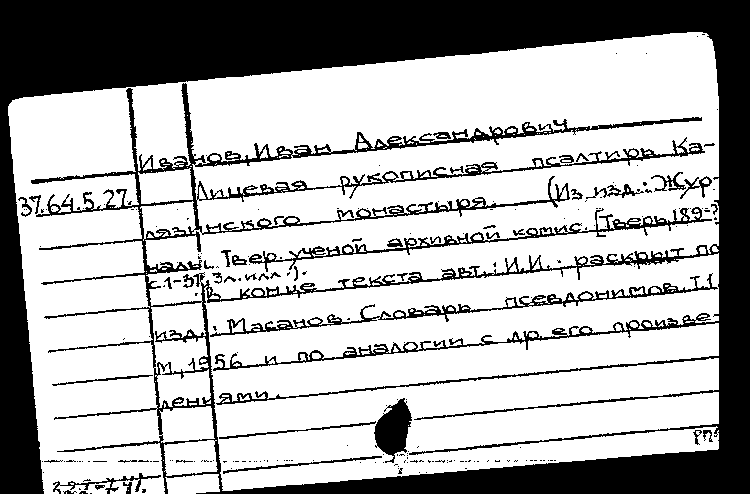 Иванов, Иван Александрович.
37.64.5.27. Лицевая рукописная псалтирь Ка-
лязинского монастыря. (Из изд.: Жур-
налы Твер. ученой архивной комис. [Тверь, 189-?]
с. 1-37, 3 л. илл.).
В конце текста авт.: И.И.; раскрыт по
изд.: Масанов. Словарь псевдонимов, Т.1.
М., 1956 и по аналогии с др. его произве-
дениями.